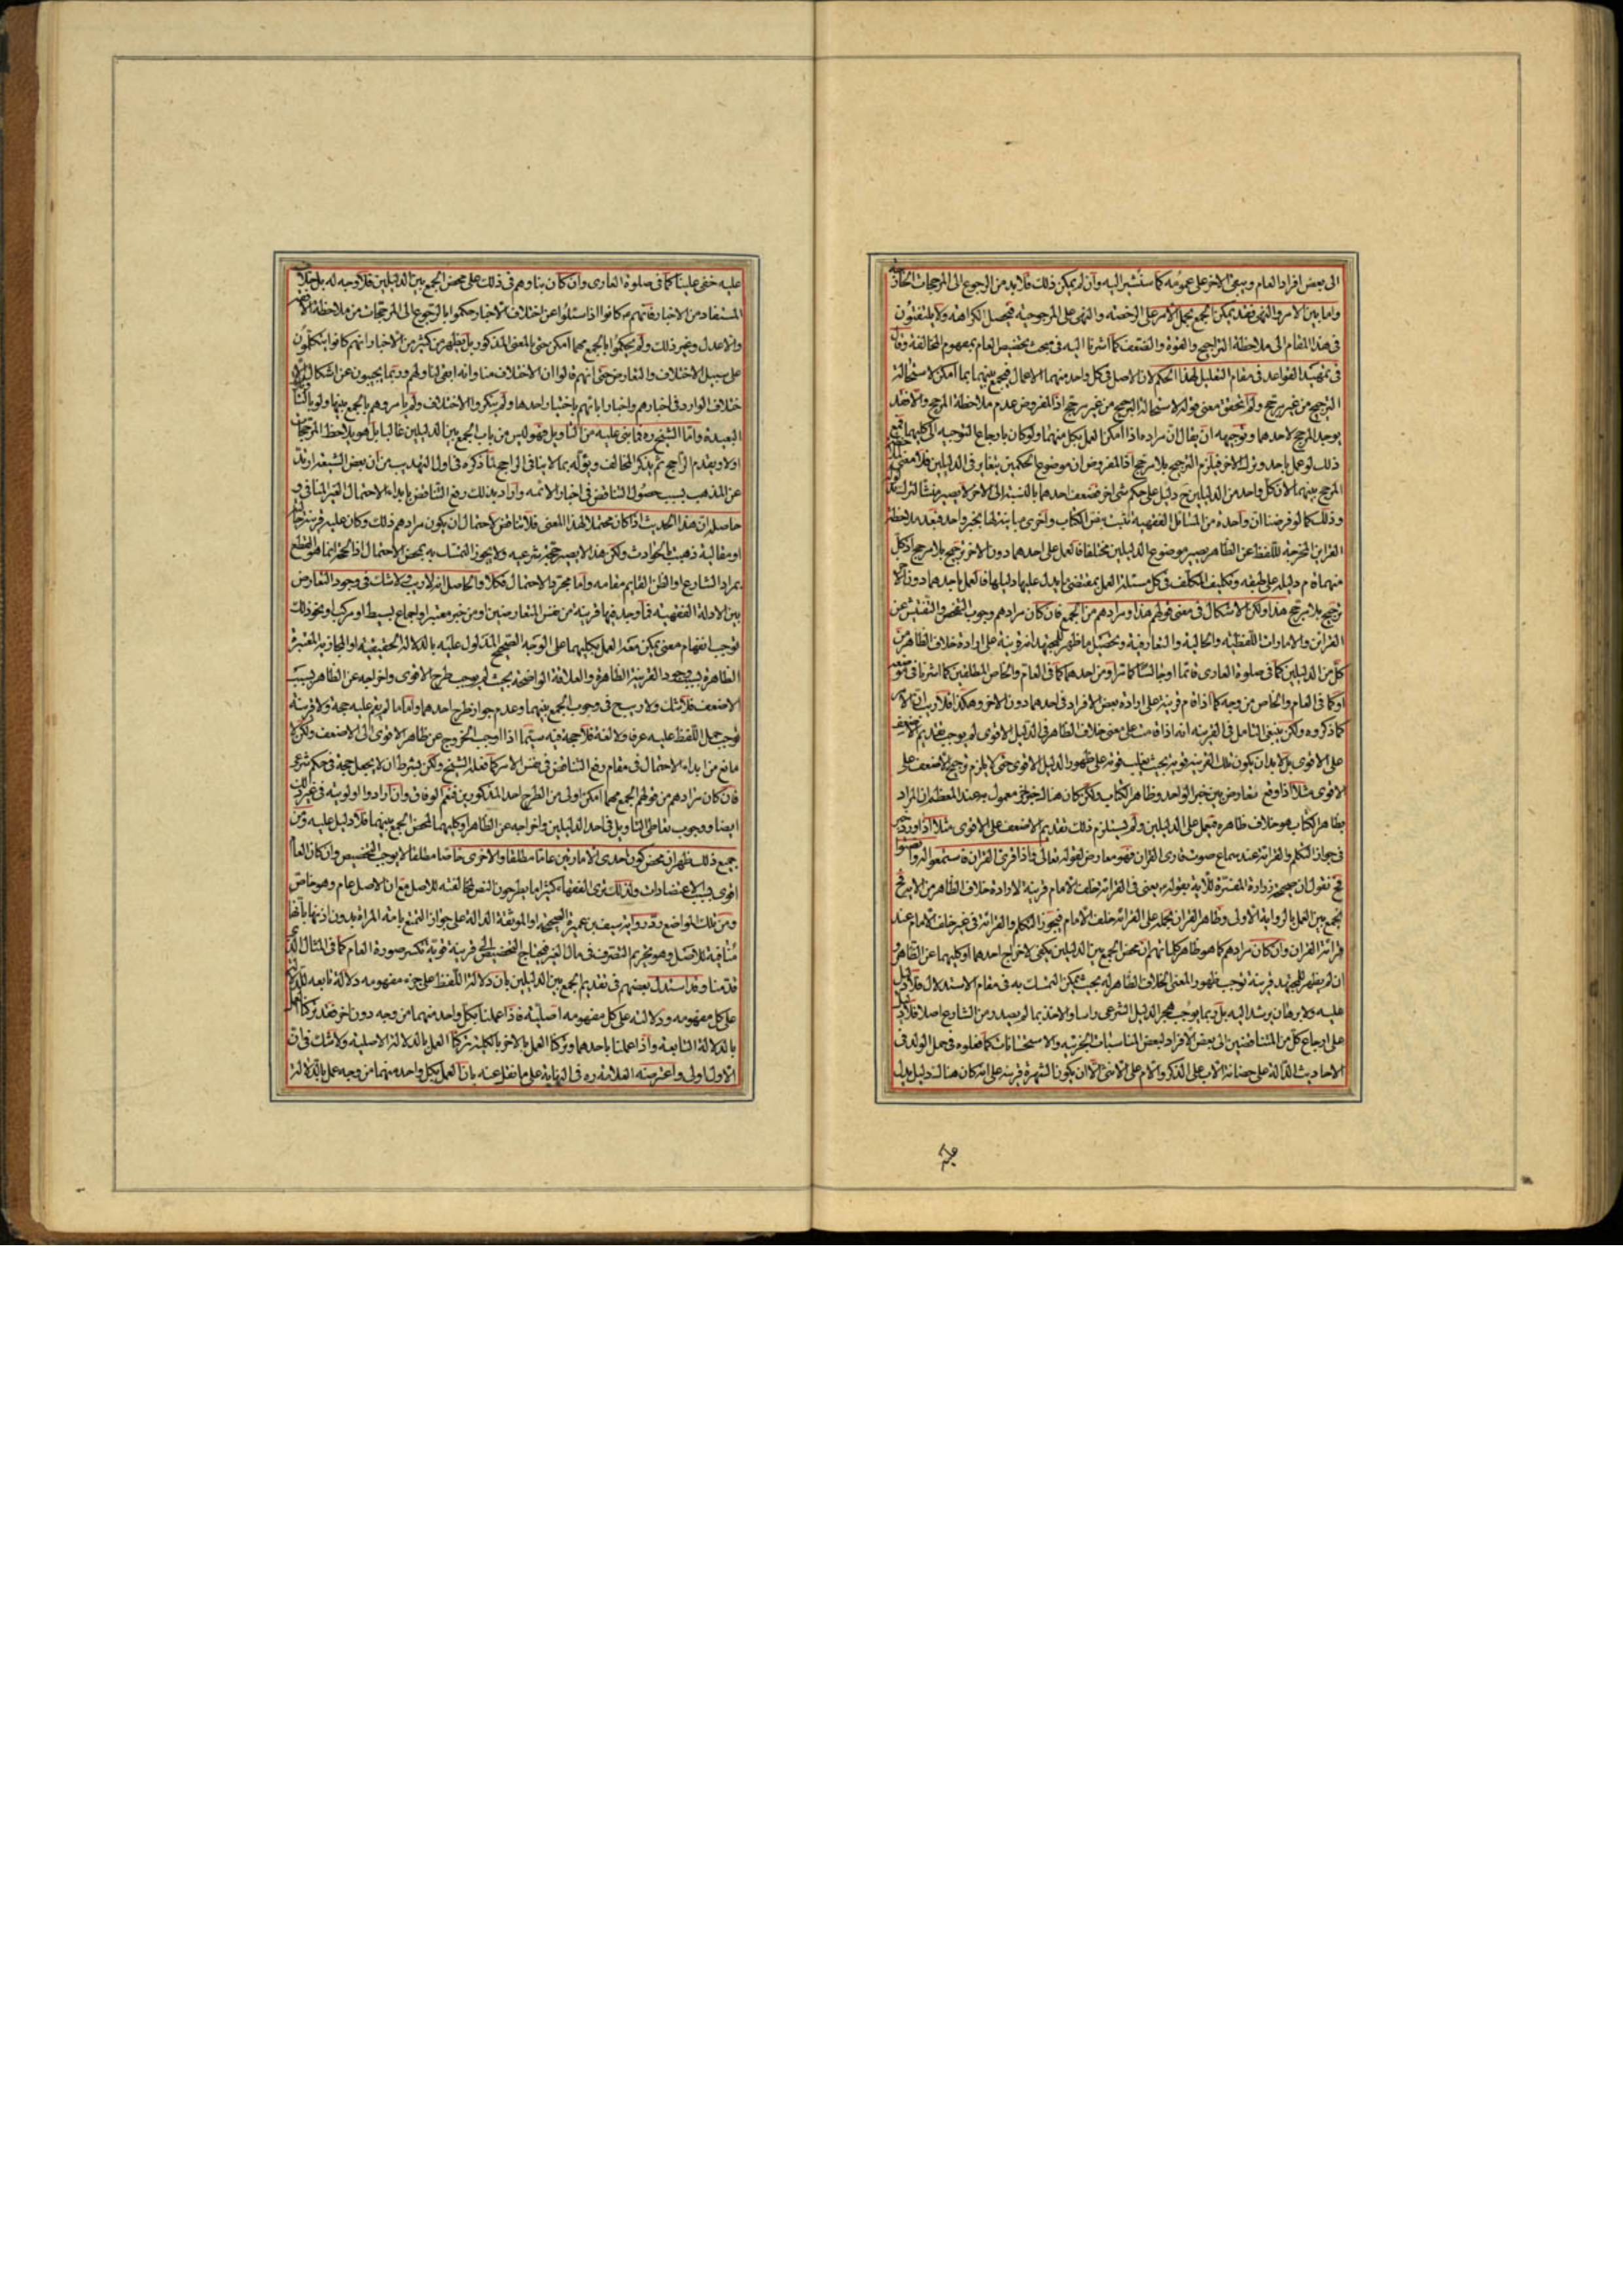 الى بعض افراد العام ويبقى الاخر على عمومه كما سنشير اليه وان لم يمكن ذلك فلا بد من الرجوع الى المرجحات الخارجة
واما بين الامر والنهى فقد يمكن الجمع بحمل الامر على الرخصة والنهى على المرجوحية فيحصل الكراهة ولا يلتفتون
فى هذا المقام الى ملاحظة التراجيح والقوة والضعف كما اشرنا اليه فى مبحث تخصيص العام بمفهوم المخالفة وقال
فى تمهيد القواعد فى مقام التعليل لهذا الحكم لان الاصل فى كل واحد منهما الاعمال فيجمع بينهما بما امكن لاستحالة
الترجيح من غير مرجح ولم نتحقق معنى قوله لاستحالة الترجيح من غير مرجح اذ المفروض عدم ملاحظة المرجح والا فقد
يوجد المرجح لاحدهما وتوجيهه ان يقال ان مراده اذا امكن العمل بكل منهما ولو كان بارجاع التوجيه الى كليهما
ذلك لو عمل باحد وترك الاخر فيلزم الترجيح بلا مرجح اذ المفروض ان موضوع الحكمين يتغاير فى الدليلين فلا معنى
المرجح بينهما لان كل واحد من الدليلين ح دليل على حكم شىء اخر فضعف احدهما بالنسبة الى الاخر لا يصير منشأ لترك
وذلك كما لو فرضنا ان واحدة من المسائل الفقهية تثبت بنص الكتاب واخرى مباينة لها بخبر واحد فبعد ملاحظة
القراين المخرجة للفظ عن الظاهر يصير موضوع الدليلين مختلفا فالعمل على احدهما دون الاخر ترجيح بلا مرجح اذ كل
منهما قام دليله على طبقه وتكليف المكلف فى كل مسئلة العمل بمقتضى ما يدل عليها دليلها فالعمل باحدهما دون الاخر
ترجيح بلا مرجح هذا ولكن الاشكال فى معنى قولهم هذا ومرادهم من الجمع فان كان مرادهم وجوب التفحص والتفتيش عن
القرائن والامارات اللفظية والحالية والتعارفية وتحصيل ما ظهر للمجتهد انه قرينة على ارادة خلاف الظاهر من
كل من الدليلين كما فى صلوة العارى قائما او جالسا كما مر او من احدهما كما فى العام والخاص المطلقين كما اشرنا فى موضعه
او كما فى العام والخاص من وجه كما اذا قام قرينة على ارادة بعض الافراد فى احدهما دون الاخر وهكذا فلا ريب ان الامر
كما ذكروه ولكن ينبغى التامل فى القرينة انه اذا قامت على معنى خلاف الظاهر فى الدليل الاقوى لم يوجب تقديم الاضعف
على الاقوى بل لا بد ان يكون تلك القرينة قوية بحيث يغلب قوته على ظهور الدليل الاقوى حتى لا يلزم ترجيح الاضعف على
الاقوى مثلا اذا وقع تعارض بين خبر الواحد وظاهر الكتاب ولكن كان هنا لخبر اخر معمول به عند المعظم ان المراد
بظاهر الكتاب هو خلاف ظاهره فيعمل على الدليلين ولم يستلزم ذلك تقديم الاضعف على الاقوى مثلا اذا ورد خبر
فى جواز التكلم والقرائة عند سماع صوت قارى القران فهو معارض لقوله تعالى واذا قرئ القران فاستمعوا له وانصتوا
فح نقول ان صحيحة زرارة المفسرة للاية بقوله يعنى فى الفرائض خلف الامام قرينة لارادة خلاف الظاهر من الاية فح
نجمع بين العمل بالرواية الاولى وظاهر القران بحمله على القرائة خلف الامام فيجوز التكلم والقرائة فى غير خلف الامام عند
قرائة القران وان كان مرادهم كما هو ظاهر كلماتهم ان محض الجمع بين الدليلين يكفى لاخراج احدهما او كليهما عن الظاهر و
ان لم يظهر للمجتهد قرينة توجب ظهور المعنى المخالف للظاهر له بحيث يمكن التمسك به فى مقام الاستدلال فلا دليل
عليه ولا برهان يرشد اليه بل ربما يوجب هجر الدليل الشرعى راسا والاخذ بما لم يصدر من الشارع اصلا فلا دليل
على ارجاع كل من المتناقضين الى بعض الافراد لبعض المناسبات الجزئية والاستحسانات كما فعلوه فى حمل الولد فى
الاحاديث الدالة على حضانة الاب على الذكر والام على الانثى الا ان يكون الشهرة قرينة على انه كان هناك دليل يدل
عليه خفى علينا كما فى صلوة العارى وان كان بناؤهم فى ذلك على محض الجمع بين الدليلين فلا وجه له بل خلاف
المستفاد من الاخبار فانهم ع كانوا اذا سئلوا عن اختلاف الاخبار حكموا بالرجوع الى المرجحات من ملاحظة
والاعدل وغير ذلك ولم يحكموا بالجمع مهما امكن حتى بالمعنى المذكور بل يظهر من كثير من الاخبار انهم كانوا يتكلمون
على سبيل الاختلاف والتعارض حتى انهم قالوا ان الاختلاف منا وانه ابقى لنا ولهم وربما يجيبون عن اشكال
ختلاف الوارد فى اخبارهم واخبار ابائهم باختيار احدها ولم ينكروا الاختلاف ولم يامروهم بالجمع بينها ولو بالتاويلات
البعيدة واما الشيخ ره فما بنى عليه من التاويل فهو ليس من باب الجمع بين الدليلين غالبا بل هو يلاحظ المرجحات
اولا ويقدم الراجح ثم يذكر المخالف ويؤله بما لا ينافى الراجح لما ذكره فى اول التهذيب من ان بعض الشيعة ارتد
عن المذهب بسبب حصول التناقض فى اخبار الائمة واراد بذلك رفع التناقض بابداء الاحتمال الغير المنافى و
حاصله ان هذا الحديث اذا كان محتملا لهذا المعنى فلا تناقض لاحتمال ان يكون مرادهم ذلك وكان عليه قرينة حالية
او مقالية ذهبت بالحوادث ولكن هذا لا يصير حجة شرعية ولا يجوز التمسك به بمحض الاحتمال اذ الحجة انما هو القطع
بمراد الشارع او الظن القايم مقامه واما مجرد الاحتمال فكلا والحاصل انه لا ريب ولا شك فى وجود التعارض
بين الادلة الفقهية فما وجد فيها قرينة من نفس المتعارضين او من خبر معتبر او اجماع بسيط او مركب او نحو ذلك
توجب انفهام معنى يمكن معه العمل بكليهما على الوجه الصحيح المدلول عليه بالدلالة الحقيقية او المجازية المعتبرة
الظاهرة بسبب وجود القرينة الظاهرة والعلاقة الواضحة بحيث لم يوجب طرح الاقوى واخراجه عن الظاهر بسبب
الاضعف فلا شك ولا ريب فى وجوب الجمع بينهما وعدم جواز طرح احدهما واما ما لم يقم عليه حجة ولا قرينة
توجب حمل اللفظ عليه عرفا ولا لغة فلا حجة فيه سيما اذا اوجب الخروج عن ظاهر الاقوى الى الاضعف ولكن لا
مانع من ابداء الاحتمال فى مقام رفع التناقض فى نفس الامر كما فعله الشيخ ولكن بشرط ان لا يجعل حجة فى حكم شرعى
فان كان مرادهم من قولهم الجمع مهما امكن اولى من الطرح احد المذكورين فنعم الوفاق وان ارادوا اولويته فى غير ذلك
ايضا ووجوب تعاطى التاويل فى احد الدليلين واخراجه عن الظاهر او كليهما لمحض الجمع بينهما فلا دليل عليه ومن
جميع ذلك ظهر ان محض كون احدى الامارتين عاما مطلقا والاخرى خاصا مطلقا لا يوجب التخصيص وان كان العام
اقوى بسبب الاعتضادات ولذلك ترى الفقهاء كثيرا ما يطرحون النص لمخالفته للاصل مع ان الاصل عام وهو خاص
ومن تلك المواضع رد رواية سيف بن عميرة الصحيحة او الموثقة الدالة على جواز التمتع بامة المراة بدون اذنها بانها
منافية للاصل وهو تحريم التصرف فى مال الغير فيحتاج التخصيص الى قرينة قوية تكسر صورة العام كما فى المثال الذى
قدمنا وقد استدل بعضهم فى تقديم الجمع بين الدليلين بان دلالة اللفظ على جزء مفهومه دلالة تابعة للدلالة
على كل مفهومه ودلالته على كل مفهومه اصلية فاذا عملنا بكل واحد منهما من وجه دون اخر فقد تركنا العمل
بالدلالة التابعة واذا عملنا باحدهما وتركنا العمل بالاخر بالكلية تركنا العمل بالدلالة الاصلية ولا شك فى ان
الاول اولى واعترضه العلامة ره فى النهاية على ما نقل عنه بان العمل بكل واحد منهما من وجه عمل بالدلالة